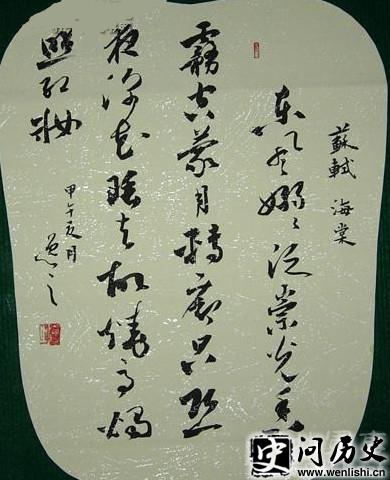 蘇軾 海棠
東風嫋々泛崇光香
霧空蒙月轉廊只恐
夜深花睡去故燒高燭
照紅妝
甲午夏月
问历史
www.wenlishi.cn